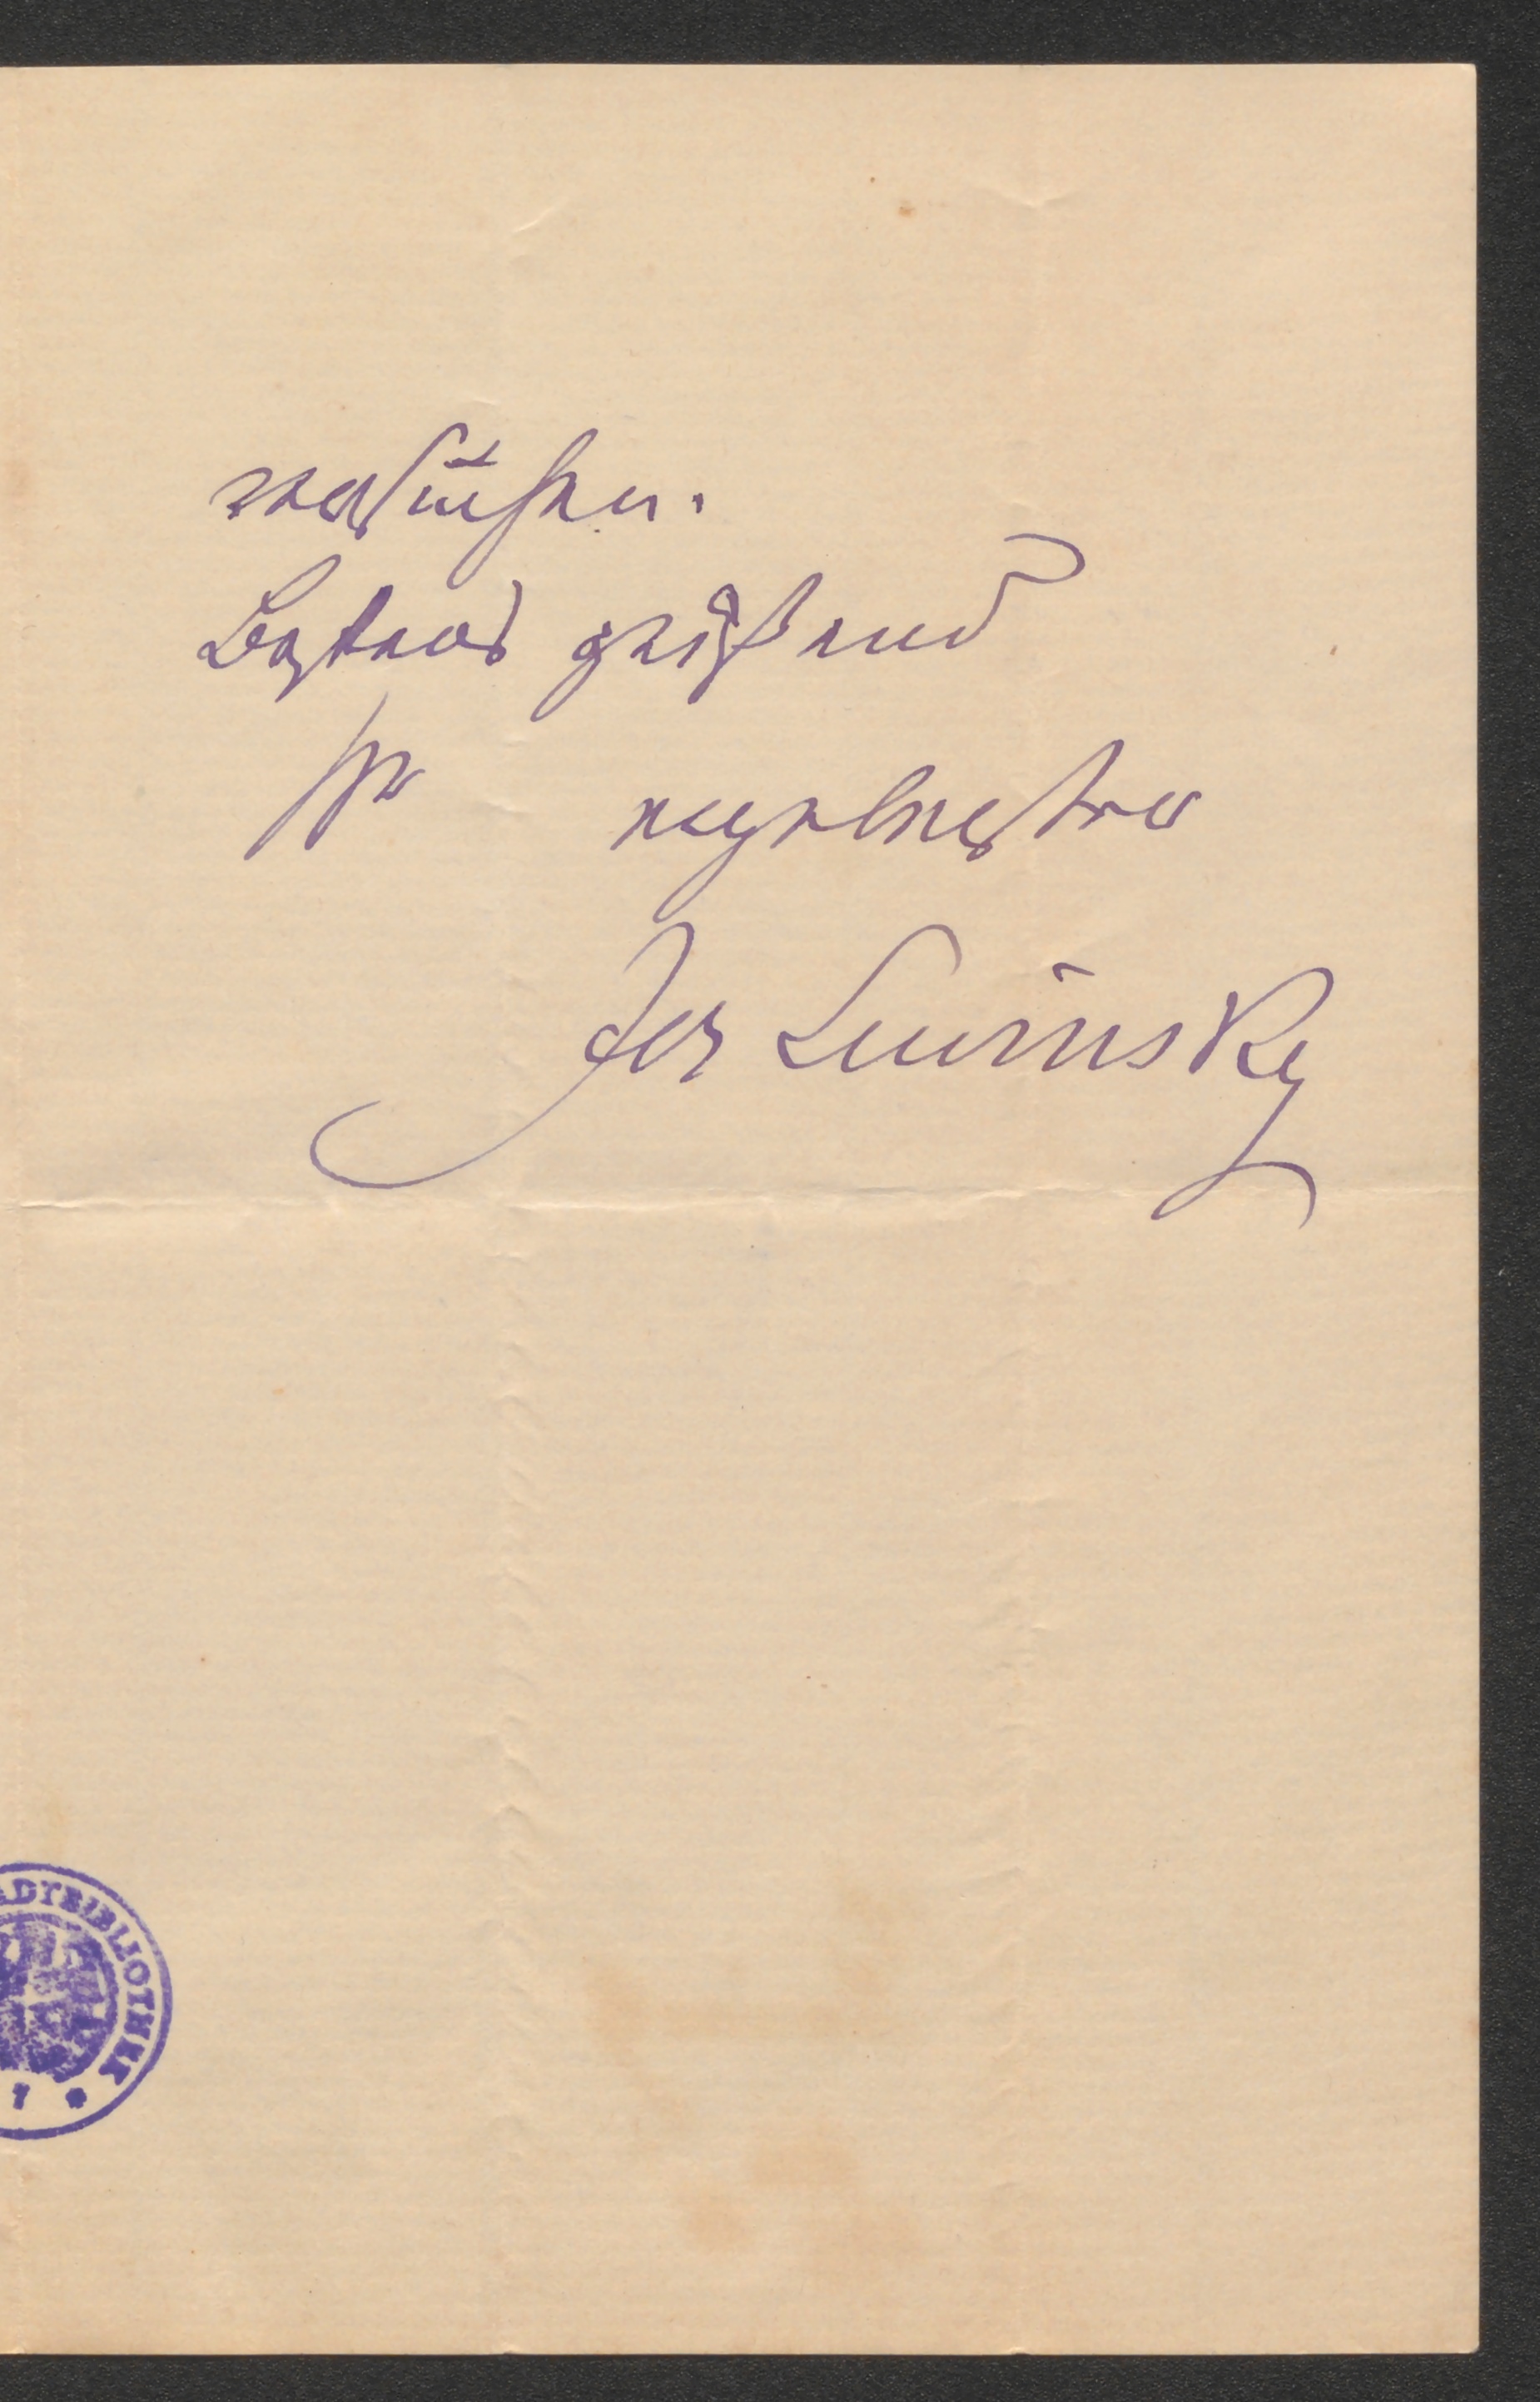 versuchen.
Bestens grüßend
Ihr ergebenster
Jos Lewinsky
STADTBIBLIOTHEK